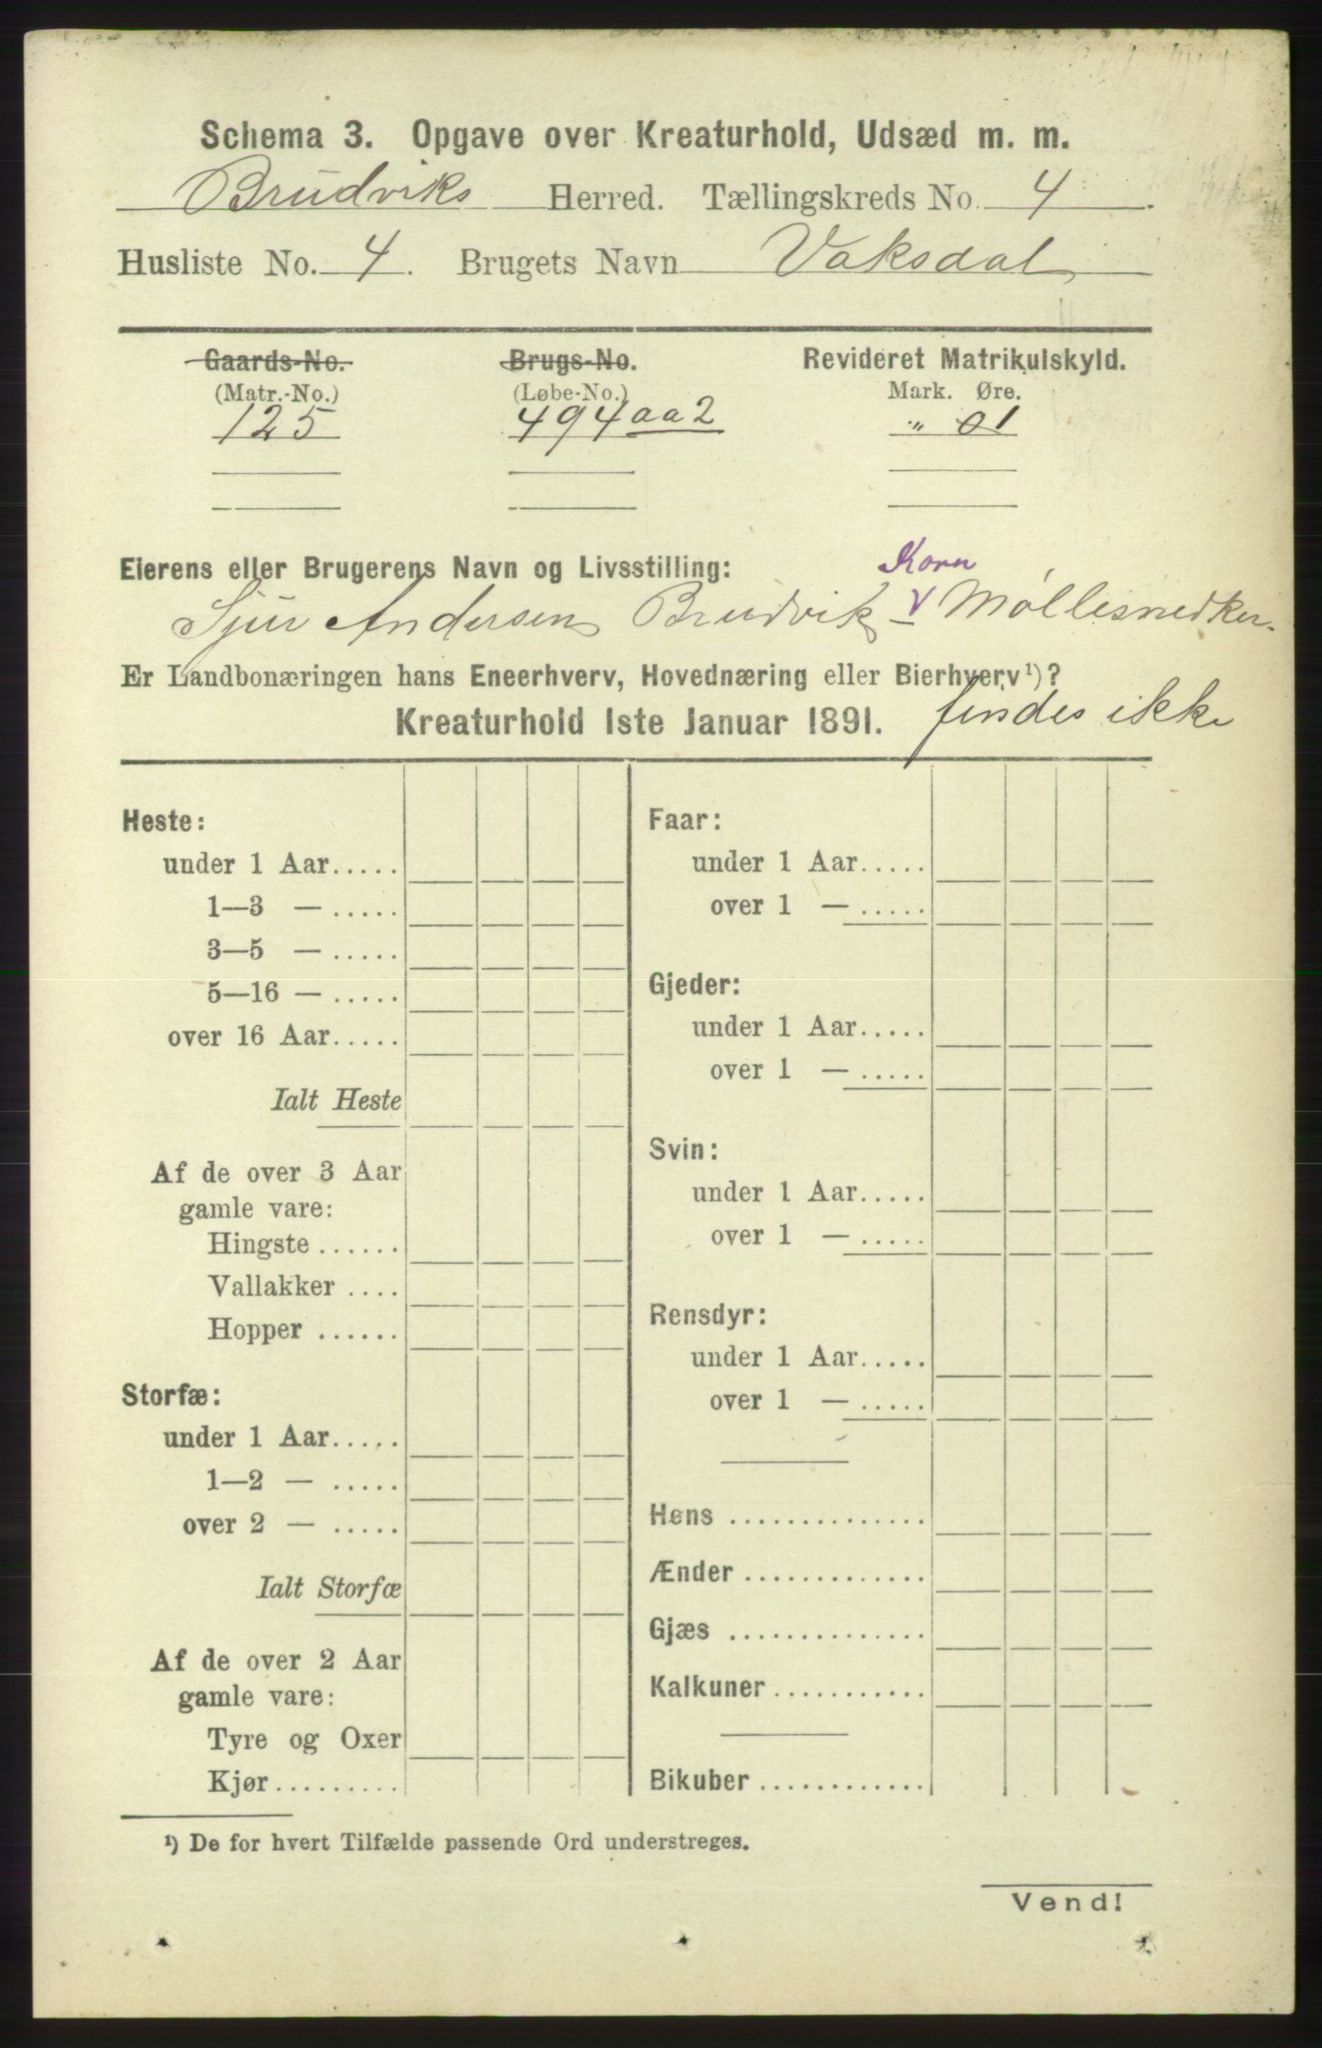 Schema 3. Opgave over Kreaturhold, Udsæd m. m.
Brudviks Herred. Tællingskreds No. 4.
Husliste No. 4. Brugets Navn Vaksdal
Gaards-No. Brugs-No. Revideret Matrikulskyld.
(Matr.-No.) (Løbe-No.) Mark. Øre.
125 494 aa 2 " 01
Korn
Eierens eller Brugerens Navn og Livsstilling:
Sjur Andersen Brudvik v Møllesnedker.
Er Landbonæringen hans Eneerhverv, Hovednæring eller Bierhverv¹)?
Kreaturhold 1ste Januar 1891. findes ikke
Heste:
under 1 Aar.....
1—3 — .....
3—5 — .....
5—16 — .....
over 16 Aar.....
Ialt Heste
Af de over 3 Aar
gamle vare:
Hingste ......
Vallakker ....
Hopper ......
Storfæ:
under 1 Aar.....
1—2 — .....
over 2 — .....
Ialt Storfæ
Af de over 2 Aar
gamle vare:
Tyre og Oxer
Kjør.........
Faar:
under 1 Aar.....
over 1 — .....
Gjeder:
under 1 Aar.....
over 1 — .....
Svin:
under 1 Aar.....
over 1 — .....
Rensdyr:
under 1 Aar.....
over 1 — .....
Høns ..............
Ænder .............
Gjæs ..............
Kalkuner...........
Bikuber ............
¹) De for hvert Tilfælde passende Ord understreges.
Vend!